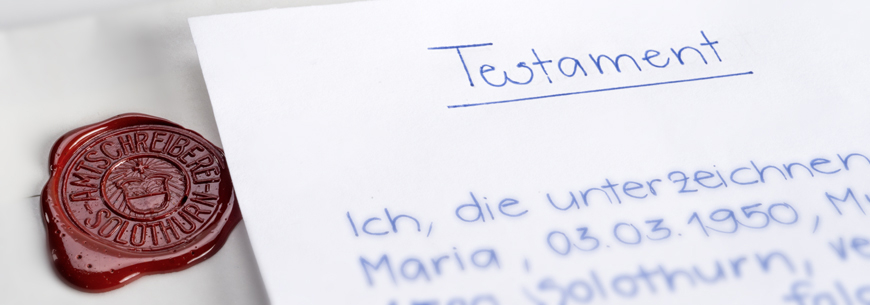 AMTSCHREIBEREI
SOLOTHURN
Testament
Ich, die unterzeichnen
Maria, 03.03.1950,
Solothurn,